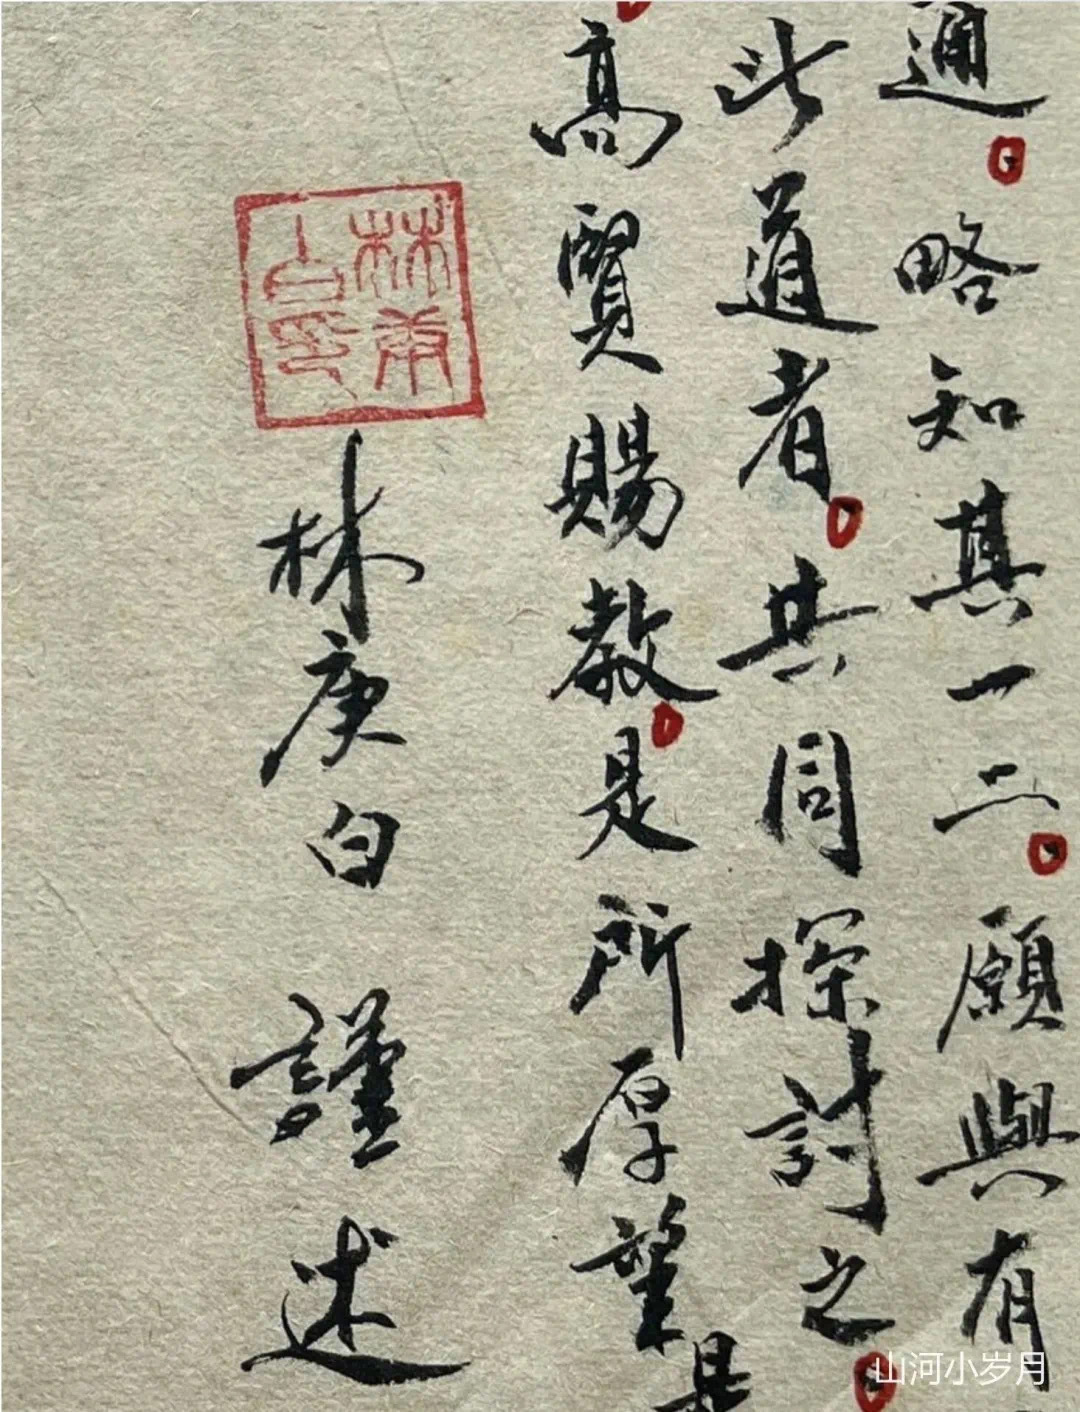 通。略知其一二。願與有
此道者。共同探討之。
高賢賜教。是所厚望
林庚白 謹 述
林庚白印
山河小岁月